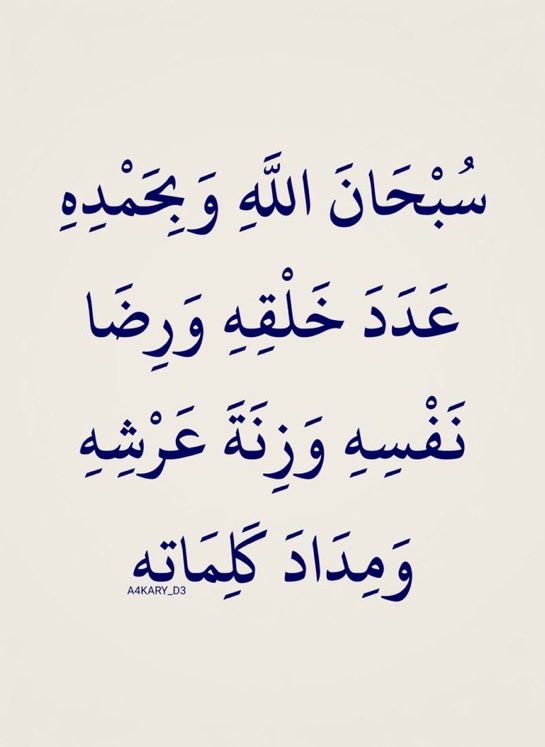 سُبْحَانَ اللَّهِ وَبِحَمْدِهِ
عَدَدَ خَلْقِهِ وَرِضَا
نَفْسِهِ وَزِنَةَ عَرْشِهِ
وَمِدَادَ كَلِمَاته
A4KARY_D3